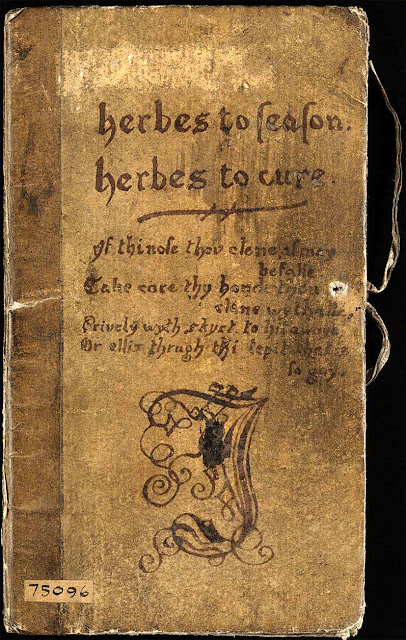 herbes to ſeaſon.
herbes to cure.
yf thinoſe thov clene may
befalle
Take care thy honde thou
clene wythalle,
Prively wyth skyrt to away
Or ellis thrugh thi tepit
ſo gay.
75096